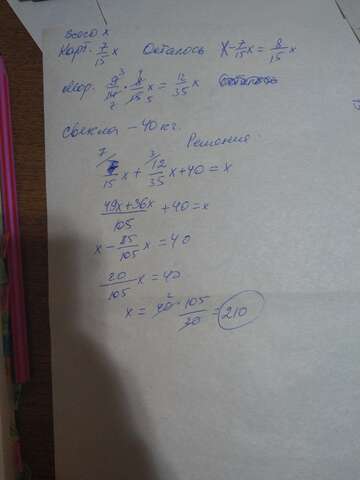 Всего x
Карт. 7/15 x Осталось x - 7/15 x = 8/15 x
Мор. 9/14 · 8/15 x = 12/35 x
свекла - 40 кг.
Решение
7/15 x + 12/35 x + 40 = x
49x+36x/105 + 40 = x
x - 85/105 x = 40
20/105 x = 40
x = 40 · 105/20 = 210